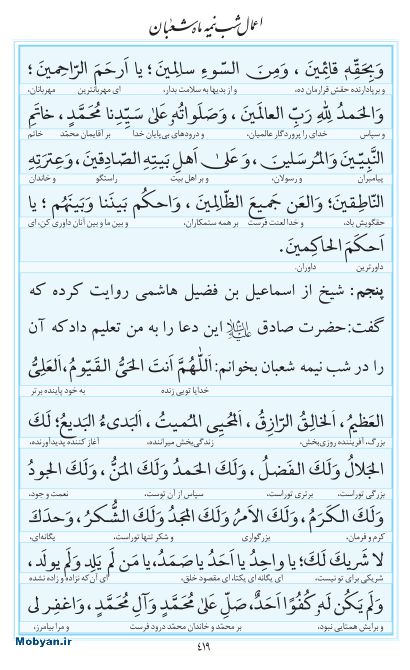 اعمال شب نیمه ماه شعبان
وَبِحَقِّهِ قائِمینَ ، وَمِنَ السّوءِ سالِمینَ؛ یا اَرحَمَ الرّاحِمینَ؛
و برپادارنده حقش قرارمان ده، و از بدیها به سلامت بدار، ای مهربانترین مهربانان،
وَالحَمدُ لِلهِ رَبِّ العالَمینَ ، وَصَلَواتُهُ عَلیٰ سَیِّدِنا مُحَمَّدٍ، خاتَمِ
و سپاس خدای را پروردگار عالمیان، و درودهای بی‌پایان خدا بر آقایمان محمّد خاتم
النَّبِیّینَ وَالمُرسَلینَ ، وَعَلیٰ اَهلِ بَیتِهِ الصّادِقینَ ، وَعِترَتِهِ
پیامبران و رسولان، و بر اهل بیت راستگو و خاندان
النّاطِقینَ؛ وَالعَن جَمیعَ الظّالِمینَ ، وَاحکُم بَینَنا وَبَینَهُم ؛ یا
حقگویش باد، و خدا لعنت فرست بر همه ستمکاران، و بین ما و بین آنان داوری کن، ای
اَحکَمَ الحاکِمینَ.
داورترین داوران.
پنجم: شیخ از اسماعیل بن فضیل هاشمی روایت کرده که
گفت: حضرت صادق علیه‌السلام این دعا را به من تعلیم داد که آن
را در شب نیمه شعبان بخوانم: اَللّهُمَّ اَنتَ الحَیُّ القَیّومُ، اَلعَلِیُّ
خدایا تویی زنده به خود پاینده برتر
العَظیمُ، اَلخالِقُ الرّازِقُ، اَلمُحیِی المُمیتُ، اَلبَدیءُ البَدیعُ؛ لَکَ
بزرگ، آفریننده روزی‌بخش، زندگی‌بخش میراننده، آغاز کننده پدیدآورنده،
الجَلالُ وَلَکَ الفَضلُ، وَلَکَ الحَمدُ وَلَکَ المَنُّ، وَلَکَ الجودُ
بزرگی توراست، برتری توراست، سپاس از آن توست، نعمت و جود،
وَلَکَ الکَرَمُ، وَلَکَ الاَمرُ وَلَکَ المَجدُ وَلَکَ الشُّکرُ، وَحدَکَ
کرم و فرمان، بزرگواری و شکر تنها توراست، یگانه‌ای،
لا شَریکَ لَکَ؛ یا واحِدُ یا اَحَدُ یا صَمَدُ، یا مَن لَم یَلِد وَلَم یولَد،
شریکی برای تو نیست، ای یگانه ای یکتا، ای مقصود خلق، ای آن‌که نزاده و زاده نشده
وَلَم یَکُن لَهُ کُفُوًا اَحَدٌ، صَلِّ عَلیٰ مُحَمَّدٍ وَآلِ مُحَمَّدٍ، وَاغفِر لی
و برایش همتایی نبود، بر محمّد و خاندان محمّد درود فرست و مرا بیامرز،
۴۱۹
Mobyan.ir